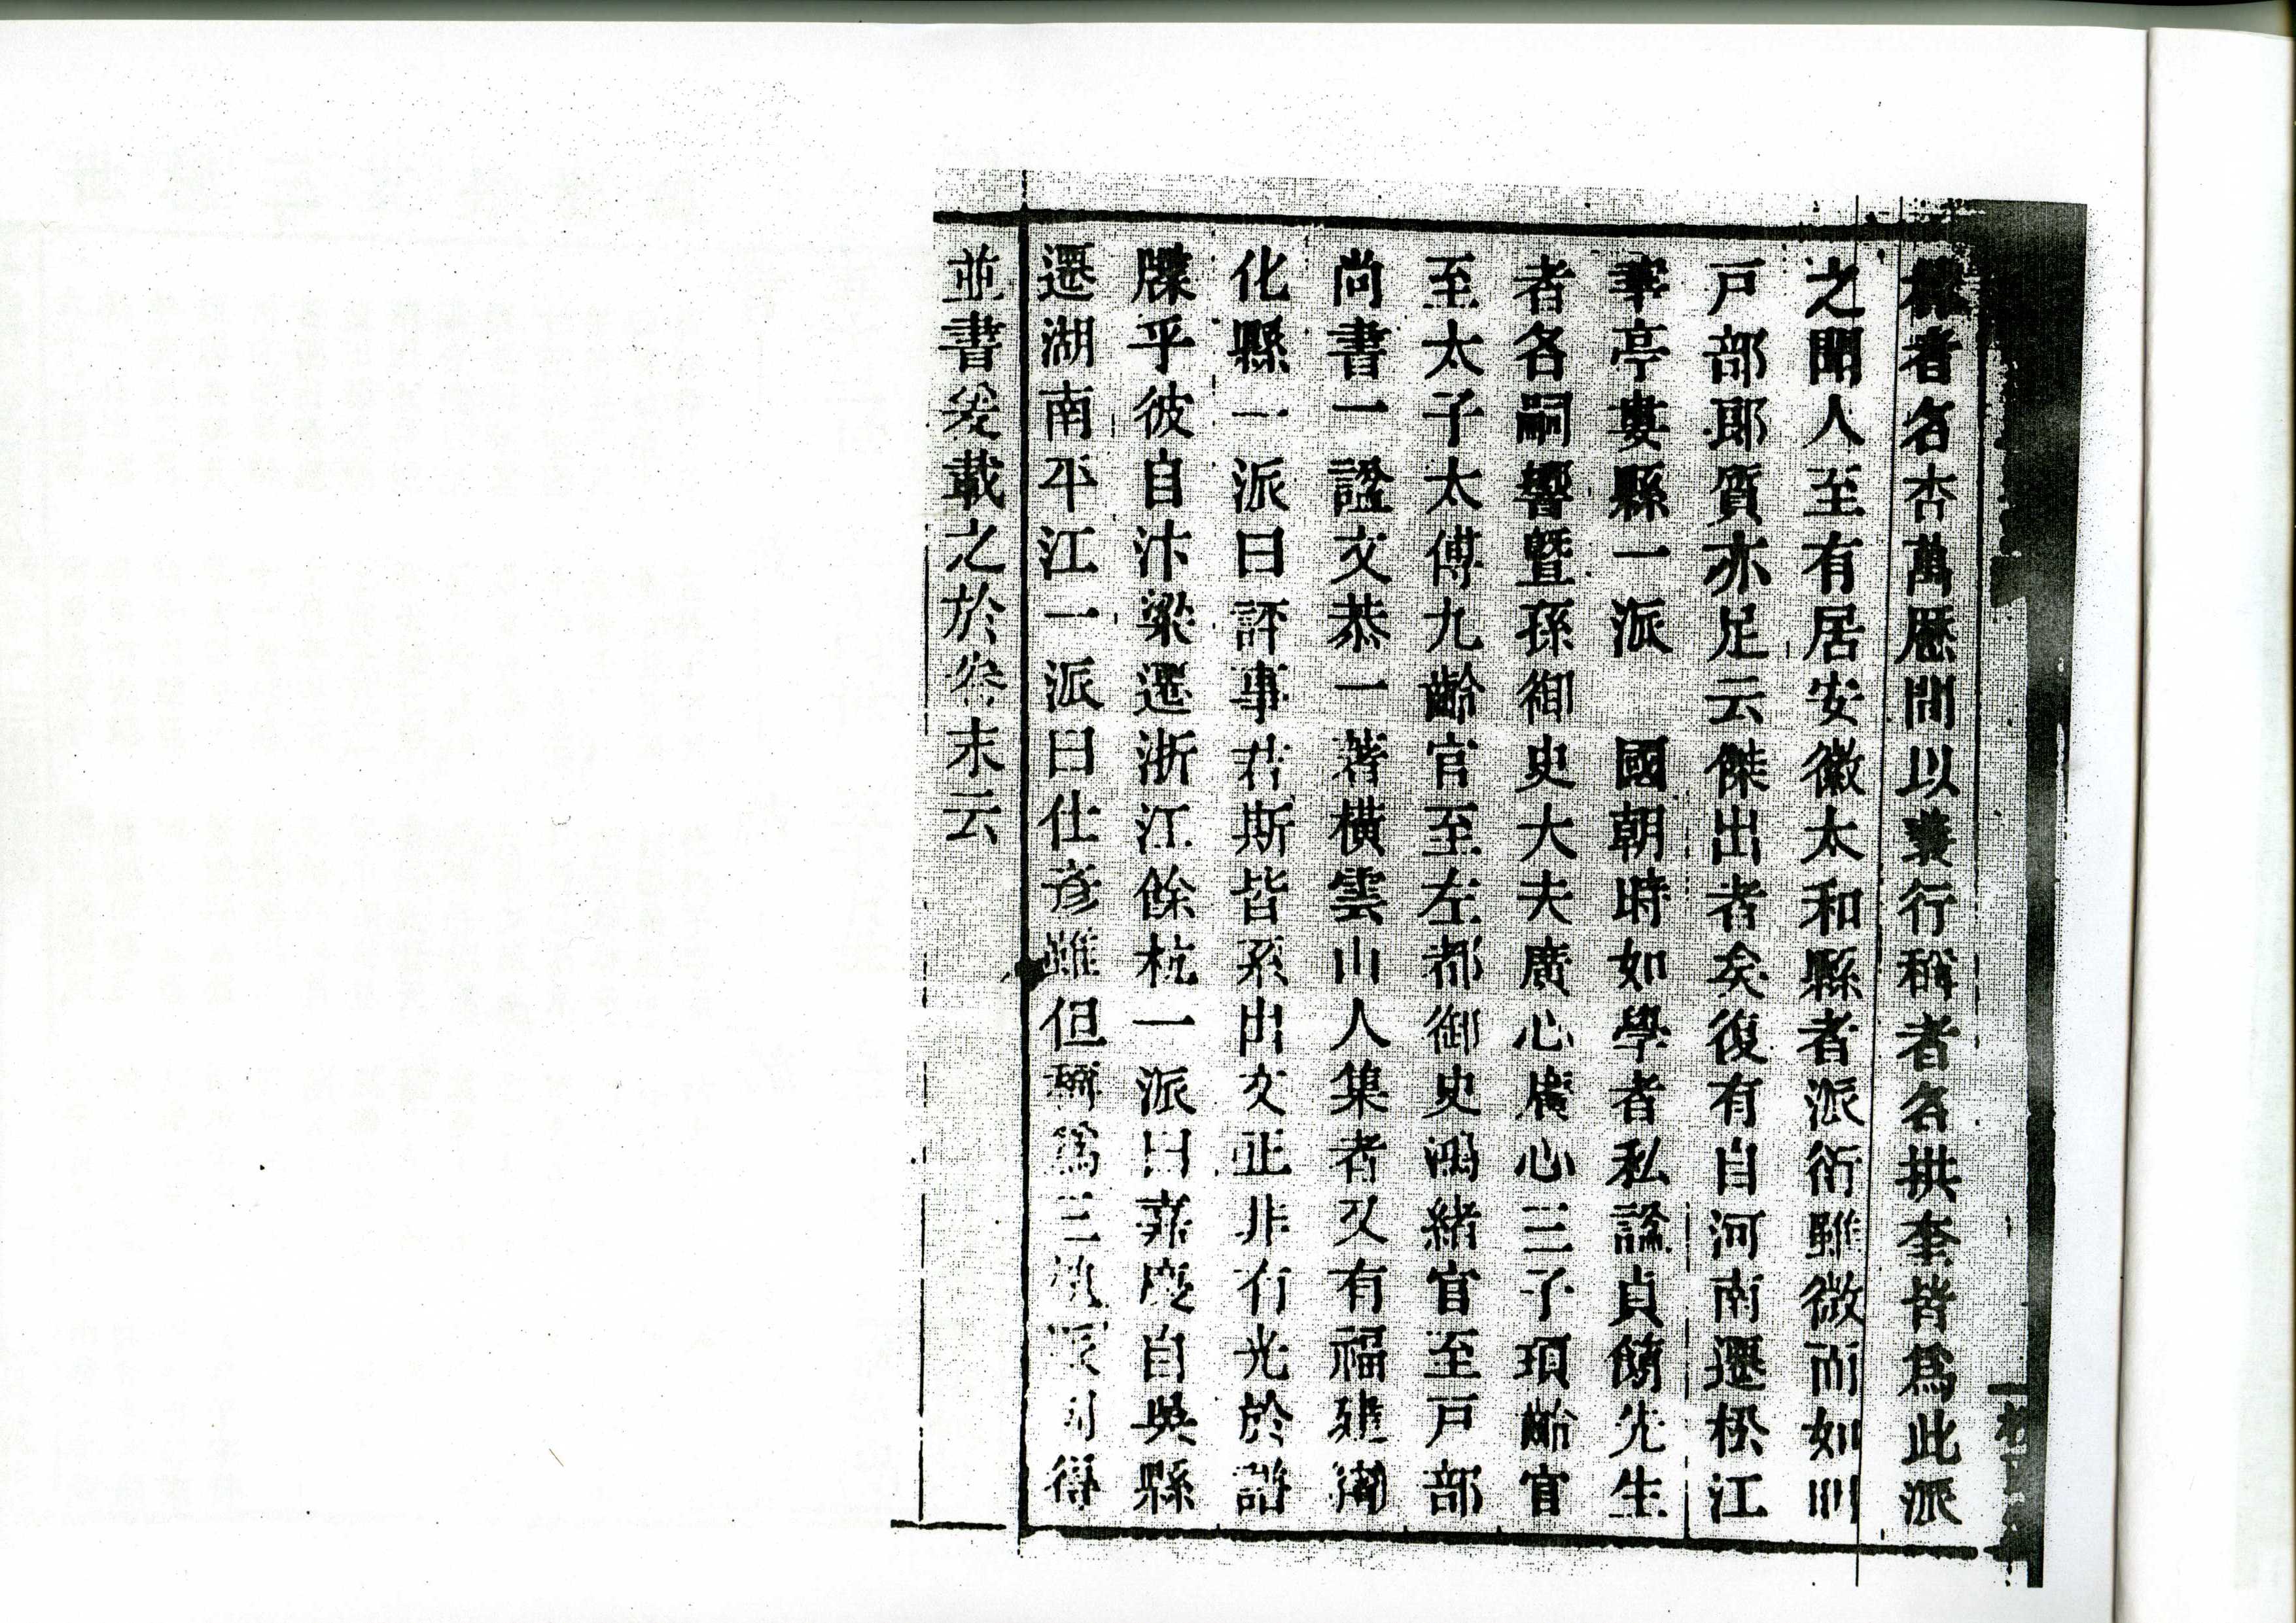 者名杏萬歷間以義行稱者名拱奎皆爲此派
之聞人至有居安徽太和縣者派衍雖微而如川
戸部郎質亦足云傑出者矣復有自河南遷松江
華亭婁縣一派　國朝時如學者私諡貞簡先生
者名嗣響暨孫御史大夫廣心廣心三子頊齡官
至太子太傅九齡官至左都御史鴻緒官至戸部
尚書一諡文恭一著橫雲山人集者又有福建
化縣一派曰評事君斯皆系由文正非有光於譜
牒乎彼自汴梁遷浙江餘杭一派曰自吳縣
遷湖南平江一派曰仕彥雖但爲三派則得
並書爰載之於卷末云